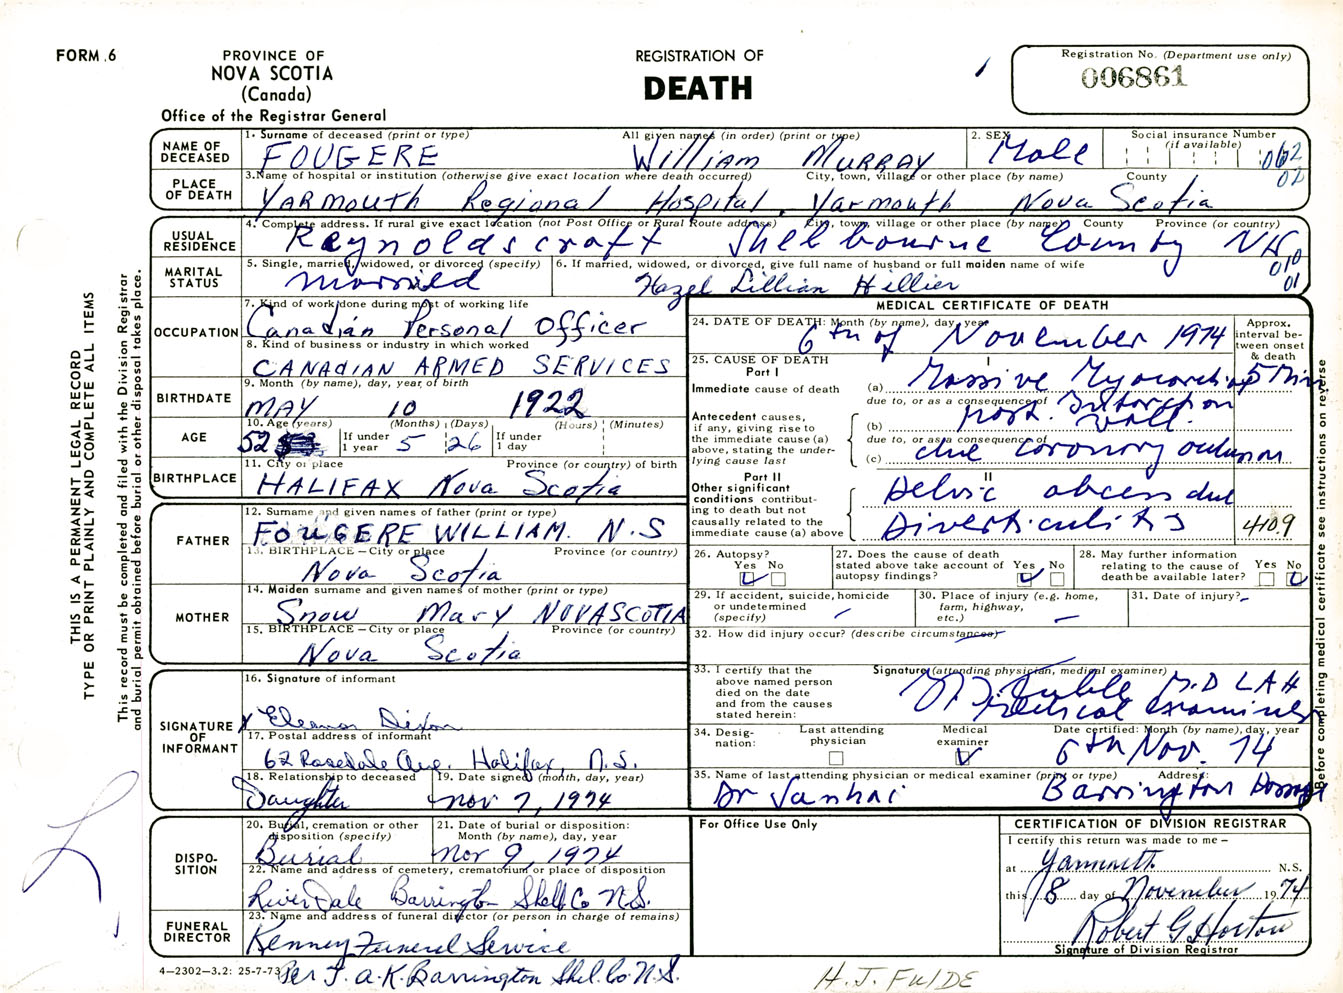 FORM 6
PROVINCE OF
NOVA SCOTIA
(Canada)
Office of the Registrar General
REGISTRATION OF
DEATH
Registration No. (Department use only)
006861
NAME OF DECEASED
1. Surname of deceased (print or type) All given names (in order) (print or type)
FOUGERE William MURRAY
2. SEX
Male
Social insurance Number
(if available)
062
02
PLACE OF DEATH
3. Name of hospital or institution (otherwise give exact location where death occurred) City, town, village or other place (by name) County
YARMOUTH Regional Hospital, Yarmouth Nova Scotia
USUAL RESIDENCE
4. Complete address. If rural give exact location (not Post Office or Rural Route address) City, town, village or other place (by name) County Province (or country)
Reynoldscraft Shelbourne County NS
010
01
MARITAL STATUS
5. Single, married, widowed, or divorced (specify)
married
6. If married, widowed, or divorced, give full name of husband or full maiden name of wife
Hazel Lillian Hillier
OCCUPATION
7. Kind of work done during most of working life
Canadian Personal Officer
8. Kind of business or industry in which worked
CANADIAN ARMED SERVICES
BIRTHDATE
9. Month (by name), day, year of birth
MAY 10 1922
AGE
10. Age (years) (Months) (Days) (Hours) (Minutes)
52 If under 1 year 5 26 If under 1 day
BIRTHPLACE
11. City or place Province (or country) of birth
HALIFAX Nova Scotia
FATHER
12. Surname and given names of father (print or type)
FOUGERE WILLIAM. N.S
13. BIRTHPLACE - City or place Province (or country)
Nova Scotia
MOTHER
14. Maiden surname and given names of mother (print or type)
Snow Mary NOVASCOTIA
15. BIRTHPLACE - City or place Province (or country)
Nova Scotia
SIGNATURE OF INFORMANT
16. Signature of informant
x Eleanor Dixon
17. Postal address of informant
62 Rosedale Ave. Halifax, N.S.
18. Relationship to deceased
Daughter
19. Date signed (month, day, year)
Nov 7, 1974
DISPO-
SITION
20. Burial, cremation or other disposition (specify)
Burial
21. Date of burial or disposition: Month (by name), day, year
Nov 9, 1974
22. Name and address of cemetery, crematorium or place of disposition
RiverDale Barrington Shelb Co N.S.
FUNERAL DIRECTOR
23. Name and address of funeral director (or person in charge of remains)
Kenney Funeral Service
Per J. A. K. Barrington Shel. Co. N.S.
4-2302-3.2: 25-7-73
MEDICAL CERTIFICATE OF DEATH
24. DATE OF DEATH: Month (by name), day, year
6th of November 1974
Approx. interval between onset & death
25. CAUSE OF DEATH
Part I
Immediate cause of death
I
(a) Massive Myocardial 5 Min
due to, or as a consequence of
infarction
Antecedent causes, if any, giving rise to the immediate cause (a) above, stating the underlying cause last
(b) post. wall.
due to, or as a consequence of
(c) due coronary occlusion
Part II
Other significant conditions contributing to death but not causally related to the immediate cause (a) above
II
Pelvic abcess due
Diverticulitis
4109
26. Autopsy? Yes No
27. Does the cause of death stated above take account of autopsy findings? Yes No
28. May further information relating to the cause of death be available later? Yes No
29. If accident, suicide, homicide or undetermined (specify)
30. Place of injury (e.g. home, farm, highway, etc.)
31. Date of injury?
32. How did injury occur? (describe circumstances)
33. I certify that the above named person died on the date and from the causes stated herein:
Signature (attending physician, medical examiner)
M.D
Medical examiner
34. Designation: Last attending physician Medical examiner
Date certified: Month (by name), day, year
6th Nov. 74
35. Name of last attending physician or medical examiner (print or type) Address:
Dr Barrington
For Office Use Only
CERTIFICATION OF DIVISION REGISTRAR
I certify this return was made to me -
at Yarmouth N.S.
this 8 day of November 1974
Robert G Horton
Signature of Division Registrar
H. J. FULDE
THIS IS A PERMANENT LEGAL RECORD
TYPE OR PRINT PLAINLY AND COMPLETE ALL ITEMS
This record must be completed and filed with the Division Registrar
and burial permit obtained before burial or other disposal takes place.
Before completing medical certificate see instructions on reverse